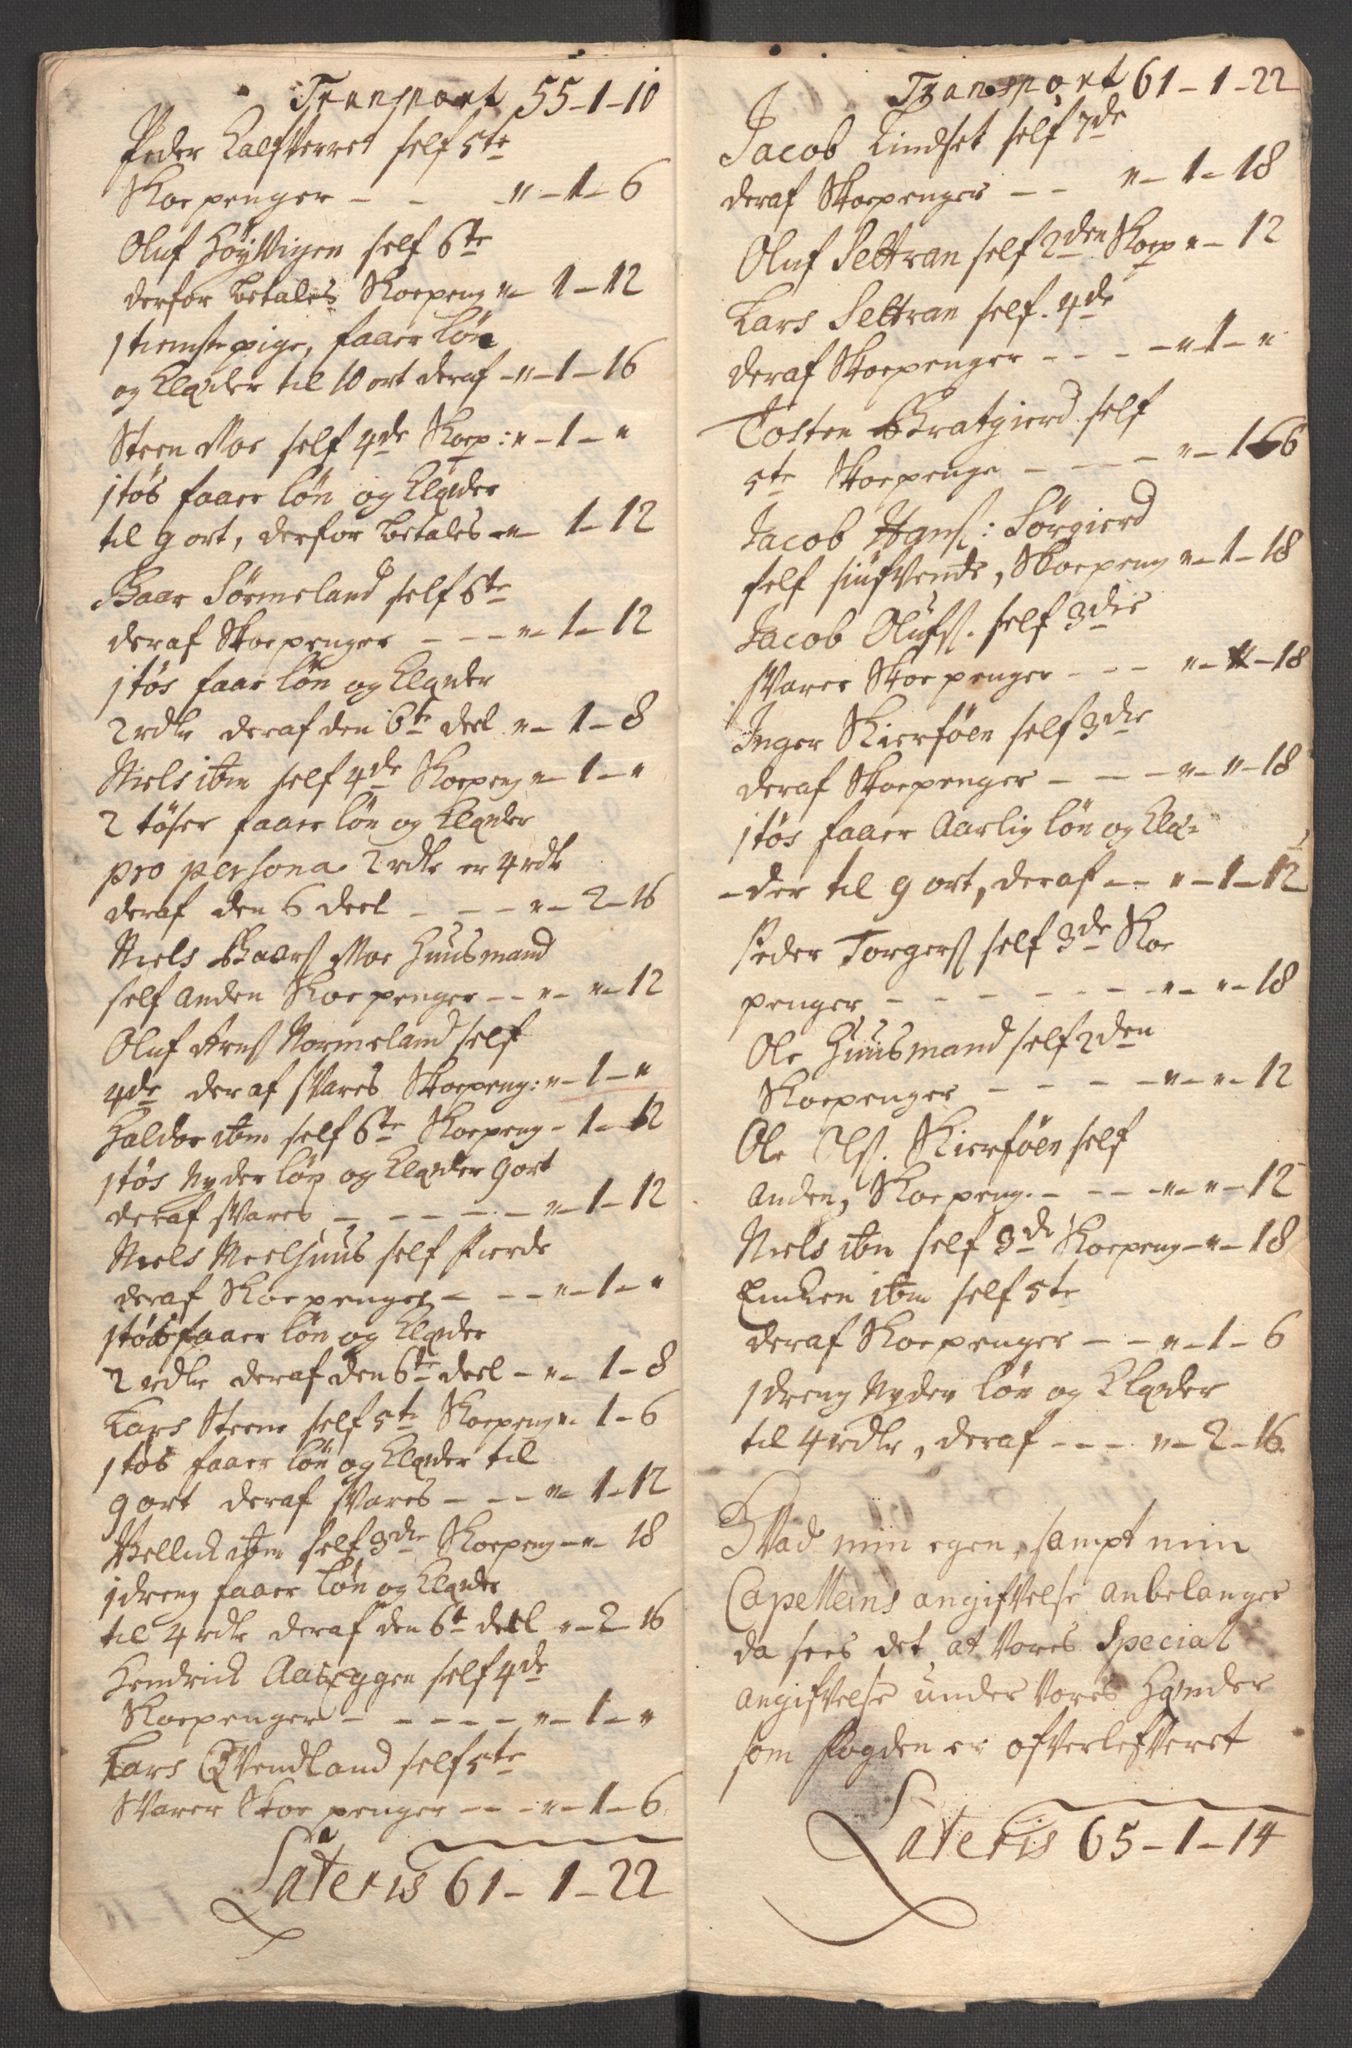 Transport 55-1-10
Peder Kalfverret self 5te
Skoepenger - - -"-1-6
Oluf Høyvigen self 6te
derfor betales Skoepeng "- 1-12
1 tienste pige, faaer løn
og Klæder til 10 ort deraf -"-1-16
Steen Moe self 4de Skoep: "-1-"
1 tøs faaer løn og Klæder
til 9 ort, derfor betales -"- 1-12
Baar Sørmeland self 6te
deraf Skoepenger - - - "-1-12
1 tøs faar løn og Klæder
2 rdlr deraf den 6te deel "-1-8
Niels ibm self 4de Skoepeng "-1-"
2 tøser faaer løn og Klæder
pro persona 2 rdlr er 4 rdlr
deraf den 6 deel - - - "-2-16
Niels Baars. Moe Huusmand
self anden Skoepenger - - "- "-12
Oluf Arns. Normeland self
4de deraf svares Skoepeng: "-1-"
Haldor ibm self 6te Skoepeng - 1-12
1 tøs Nyder løn og Klæder 9 ort
deraf svares - - - - - "-1-12
Niels Meelhuus self fierde
deraf Skoepenger - - - "-1-"
1 tøs faaer løn og Klæder
2 rdlr deraf den 6te deel - "- 1-8
Lars Steene self 5te Skoepeng "- 1-6
1 tøs faaer løn og Klæder til
9 ort deraf svares - - - "- 1-12
Bellick ibm self 3die Skoepeng -"- 18
1 dreng faaer løn og Klæder
til 4 rdlr deraf den 6te deel "-2-16
Hendrick Aaseggen self 4de
Skoepenger - - - - - "-1-"
Lars Qvendland self 5te
Svarer Skoepenger - - - "-1-6
Lateris 61-1-22
Transport 61-1-22
Jacob Lindset self 7de
deraf Skoepenger - - "-1-18
Oluf Settran self 2den Skoep "- 12
Lars Settran self. 4de
deraf Skoepenger - - - -"-1-"
Tosten Bratgierd self
5te Skoepenge - - - - "-1-6
Jacob Hans: Sørgierd
self siufvende, Skoepeng "-1-18
Jacob Olufs. self 3die
svarer Skoepenger - - - "-"-18
Inger Skierføen self 3die
deraf Skoepenger - - - "-"-18
1 tøs faaer Aarlig løn og Klæ-
-der til 9 ort, deraf - - "-1-12
Peder Torgers. self 3de Skoe
penger - - - - - - -"- "-18
Ole Huusmand self 2den
Skoepenger - - - - -"-"-12
Ole Ols. Skierføen self
anden, Skoepeng. - - - -"-"-12
Niels ibm self 3de Skoepeng -"-18
ibm self 5te
deraf Skoepenger - - "-1-6
1 dreng Nyder løn og Klæder
til 4 rdlr, deraf - - - "-2-16
Hvad min egen, sampt min
Capelleins angifvelse anbelanger
da sees det, at Vores Special
angifvelse under Vores Hænder
som fogden er ofverlefveret
Lateris 65-1-14